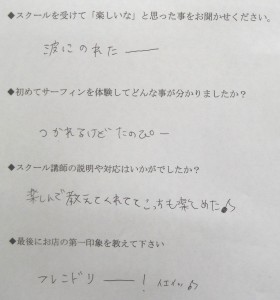 ◆スクールを受けて「楽しいな」と思った事をお聞かせください。
波にのれたーー
◆初めてサーフィンを体験してどんな事が分かりましたか？
つかれるけどたのぴー
◆スクール講師の説明や対応はいかがでしたか？
楽しんで教えてくれてこっちも楽しめた♪
◆最後にお店の第一印象を教えて下さい
フレンドリーー！イエイ♪